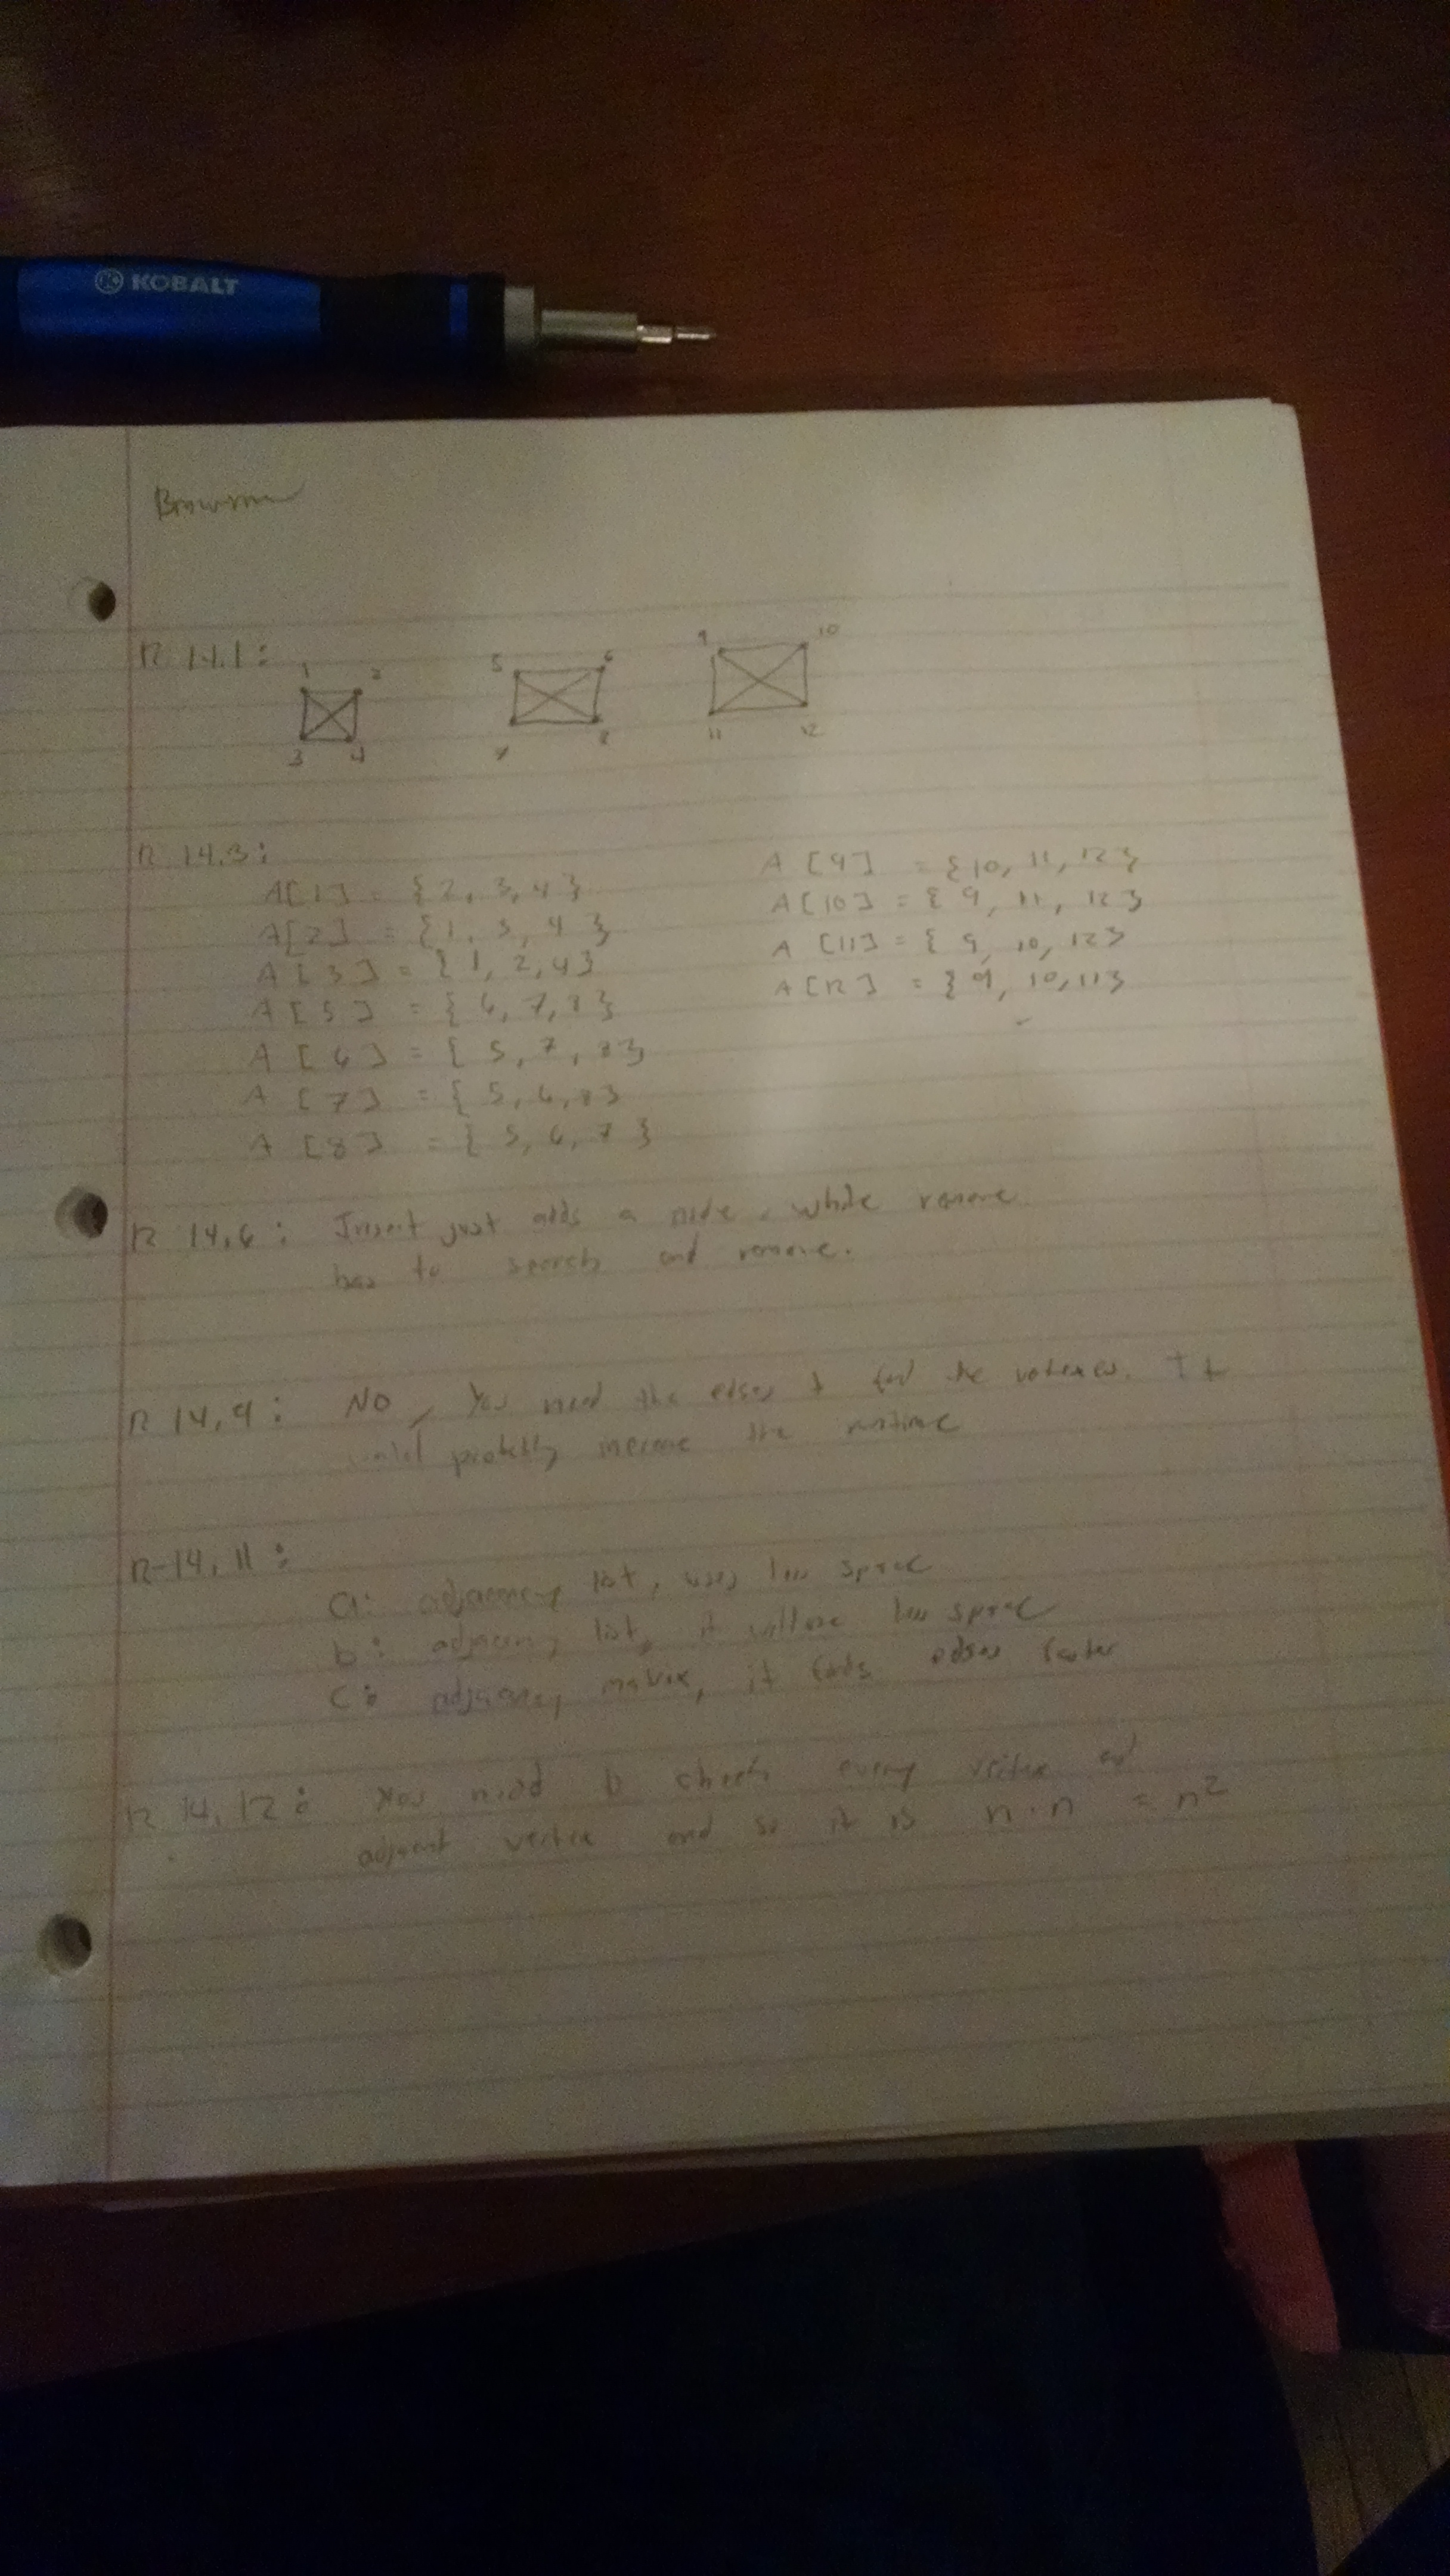 KOBALT
R 14.1:
1 2
3 4
5 6
7 8
9 10
11 12
R 14.3:
A[1] = {2, 3, 4}
A[2] = {1, 3, 4}
A[3] = {1, 2, 4}
A[5] = {6, 7, 8}
A[6] = {5, 7, 8}
A[7] = {5, 6, 8}
A[8] = {5, 6, 7}
A[9] = {10, 11, 12}
A[10] = {9, 11, 12}
A[11] = {9, 10, 12}
A[12] = {9, 10, 11}
R 14.6: Insert just adds a node, while remove
has to search and remove.
R 14.9: NO, You need the edges the It
probably the runtime
R-14.11:
a: adjacency list, uses less space
b: adjacency list, it will use less space
c: adjacency matrix, it finds edges faster
R 14.12: You need to check every vertex and
adjacent vertex and so it is n·n = n²